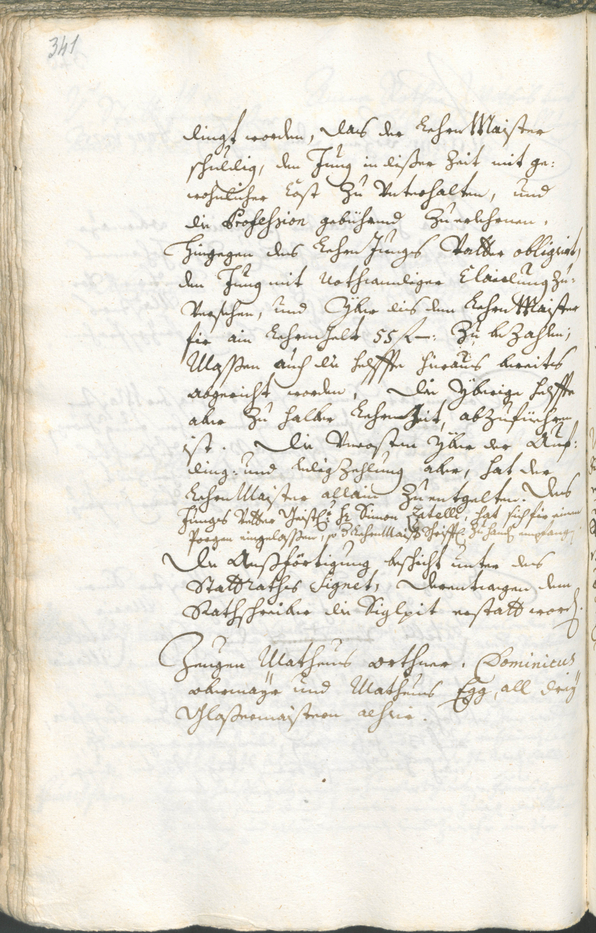 341
dingt worden, das der LehrnMaister
schuldig, den Jung in dißer Zeit mit ge:
wohnlicher Cost zu Unterhalten, und
die Profession gebührend zuerlehrnen.
Hingegen des LehrnJungs Vatter obligiert,
den Jung mit nothwendiger Claidung zu:
Versehen, und Yber dis dem LehrnMaister
für ain LehrnGelt 55 f — zu bezahlen,
Massen auch die helffte hieraus bereits
abgericht worden, die Ybrige helffte
aber zu halber LehrnZeit, abzuführen
ist. Die Uncosten Yber die Auf:
ding: und ledigZehlung aber, hat der
LehrnMaister allain zu entgelten. Des
Jungs Vatter H: Simon hat sich für einen
Porgen eingelassen,
Die Außförtigung beschicht unter des
Stattraths Signet, Deentwegen dem
Rathschreiber die Siglpit erstatt worden.
Zeugen Matheus orthner. Dominicus
obermayr und Matheus Egg, all drey
Glasermaistern alhie.